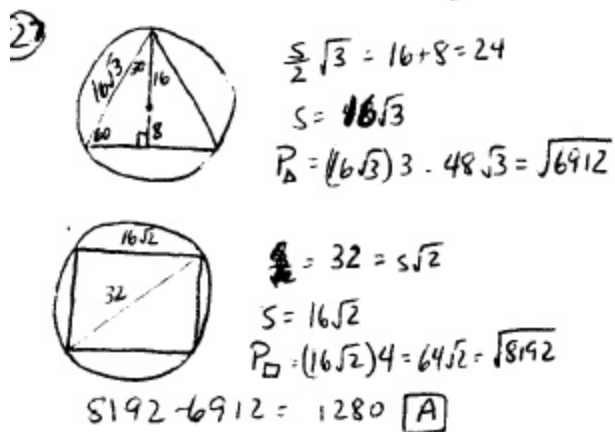 27
16√3
30
16
60
8
s/2 √3 = 16+8 = 24
s = 16√3
P△ = (16√3) 3 - 48√3 = √6912
16√2
32
= 32 = s√2
s = 16√2
P□ = (16√2) 4 = 64√2 = √8192
8192 - 6912 = 1280 A